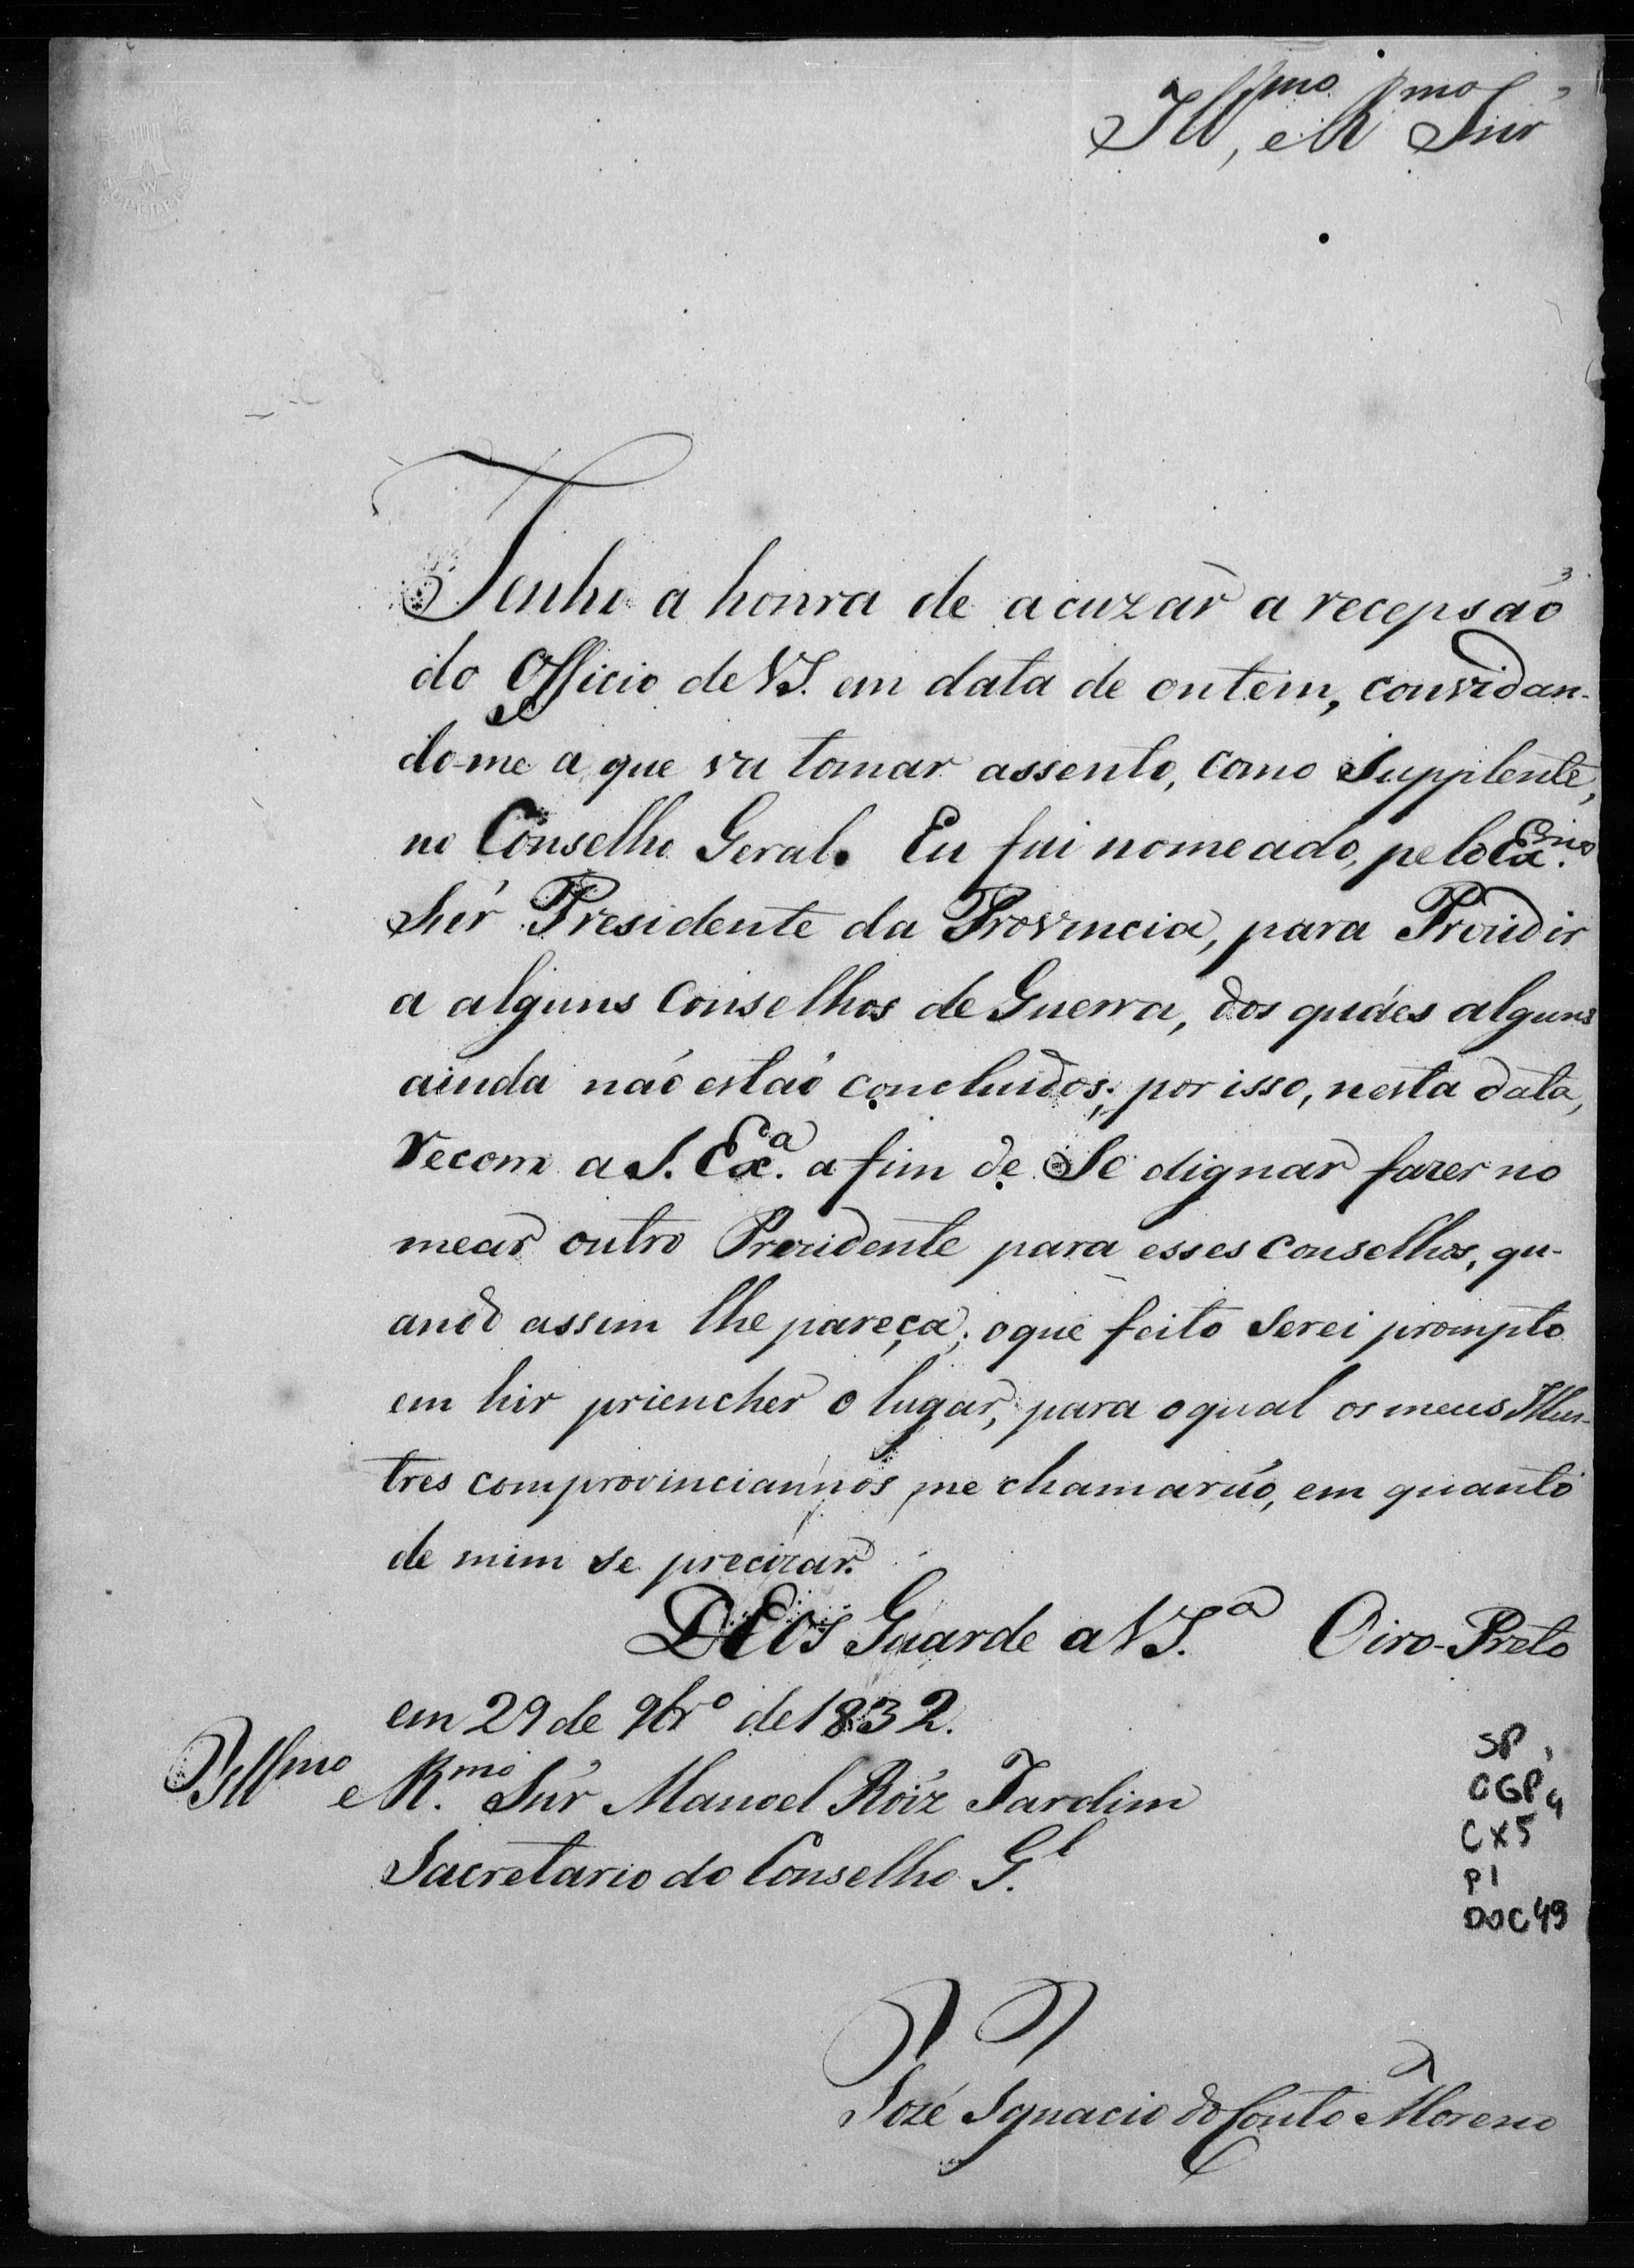 Ill.mo, e R.mo Snr̃
Tenho a honra de acuzar a recepsaõ
do Officio de V S. em data de ontem, convidan-
do-me a que va tomar assento, como Supplente,
no Conselho Geral. Eu fui nomeado, pelo Ex.mo
Snr̃ Presidente da Provincia, para Prezidir
a alguns Conselhos de Guerra, dos quáes alguns
ainda naõ estaõ concluidos; por isso, nesta data,
recorro a S. Ex.a a fim de Se dignar fazer no
mear outro Prezidente para esses conselhos, qu-
ando assim lhe pareça; o que feito serei prompto
em hir priencher o lugar, para o qual os meus Illus-
tres comprovinciannos me chamaráo, em quanto
de mim se precizar.
DEOS Guarde a V S.a Oiro-Preto
em 29 de 9br.o de 1832.
Ill.mo e R.mo Snr̃ Manoel Róiz Jardim
Sacretario do Conselho G.l
SP
CGP 4
CX5
P1
DOC 49
Jozé Ignacio do Couto Moreno